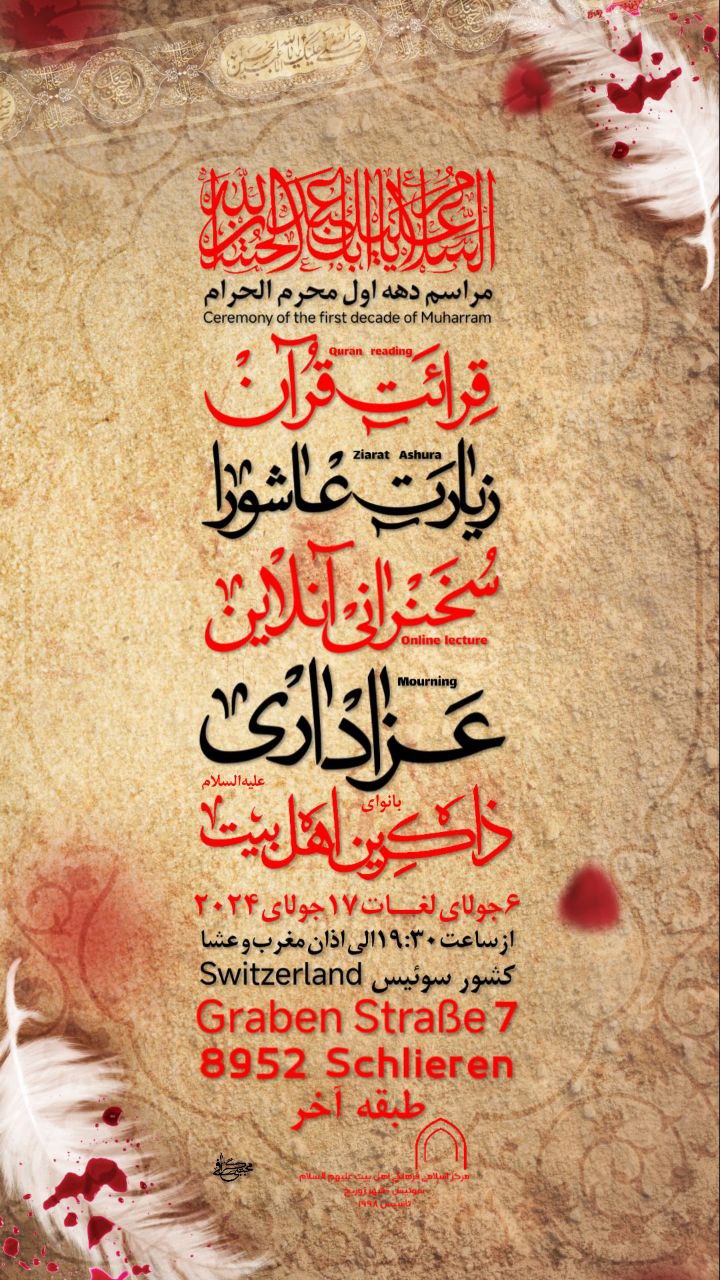 السلام علیک یا اباعبدالله الحسین
مراسم دهه اول محرم الحرام
Ceremony of the first decade of Muharram
Quran reading
قِرائَتِ قُرآن
Ziarat Ashura
زیارَتِ عاشورا
سُخَنرانی آنلاین
Online lecture
Mourning
عَزاداری
علیه‌السلام
بانوای
ذاکِرین اهل بیت
۶ جولای لغات ۱۷ جولای ۲۰۲۴
از ساعت ۱۹:۳۰ الی اذان مغرب و عشا
کشور سوئیس Switzerland
Graben Straße 7
8952 Schlieren
طبقه آخر
مرکز اسلامی فرهنگی اهل بیت علیهم السلام
سوئیس شهر زوریخ
تاسیس ۱۹۹۸